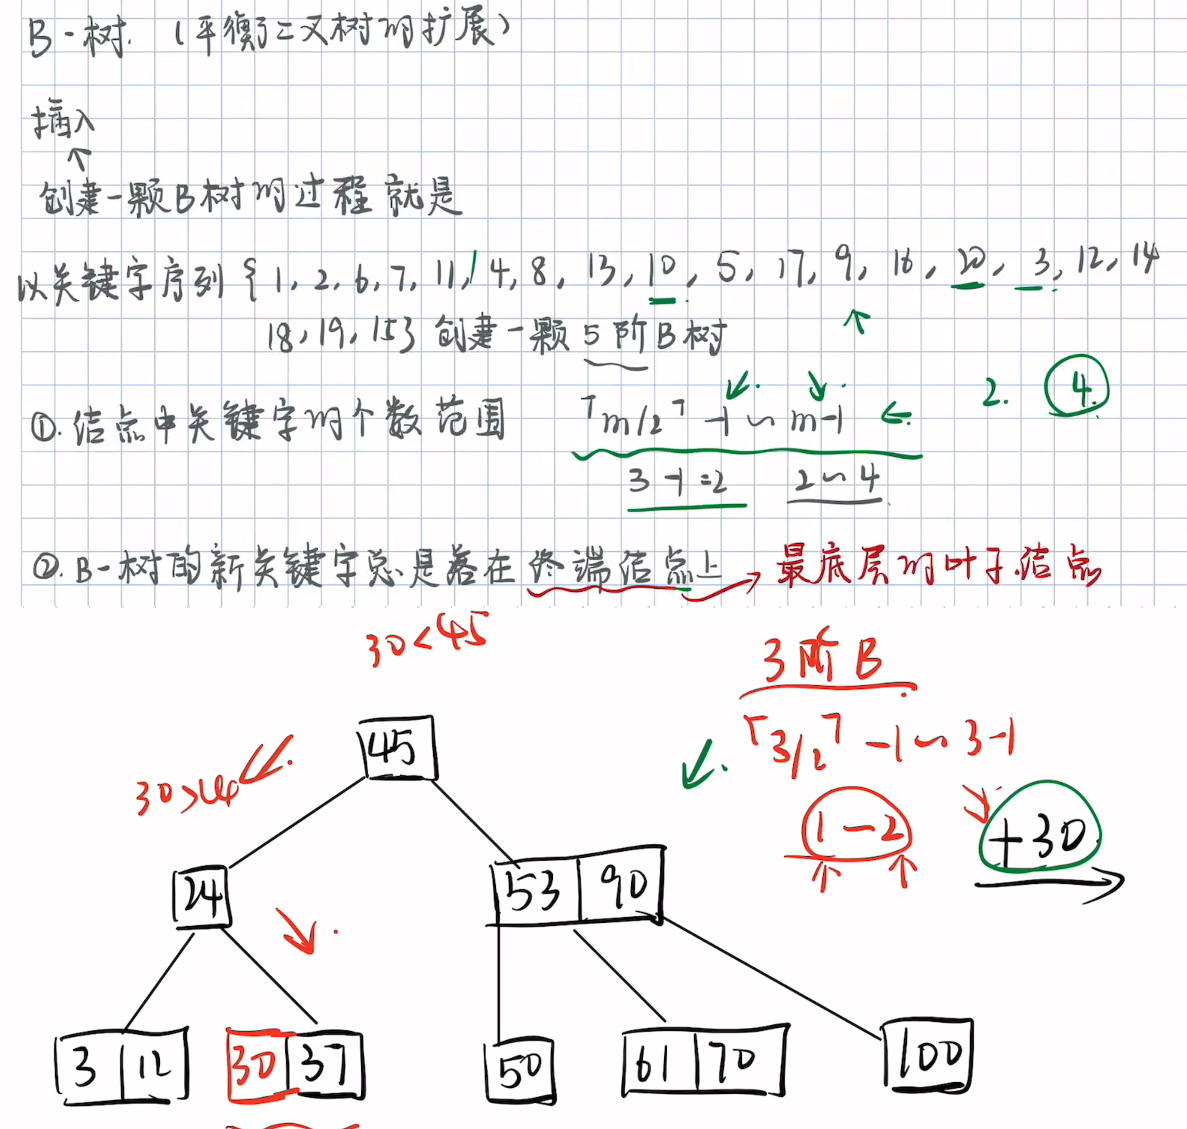 B-树. (平衡二叉树的扩展)
插入
↑
创建一颗B树的过程就是
以关键字序列 { 1, 2, 6, 7, 11, 4, 8, 13, 10, 5, 17, 9, 16, 20, 3, 12, 14
18, 19, 15} 创建一颗 5 阶 B 树
①. 结点中关键字的个数范围 ⌈m/2⌉ -1 ~ m-1 ← 2. 4.
3-1=2 2~4
②. B-树的新关键字总是落在终端结点上 → 最底层的叶子结点
30<45
3 阶 B
⌈3/2⌉ -1 ~ 3-1
45
30>24
1-2 +30
24 53 90
3 12 30 37 50 61 70 100